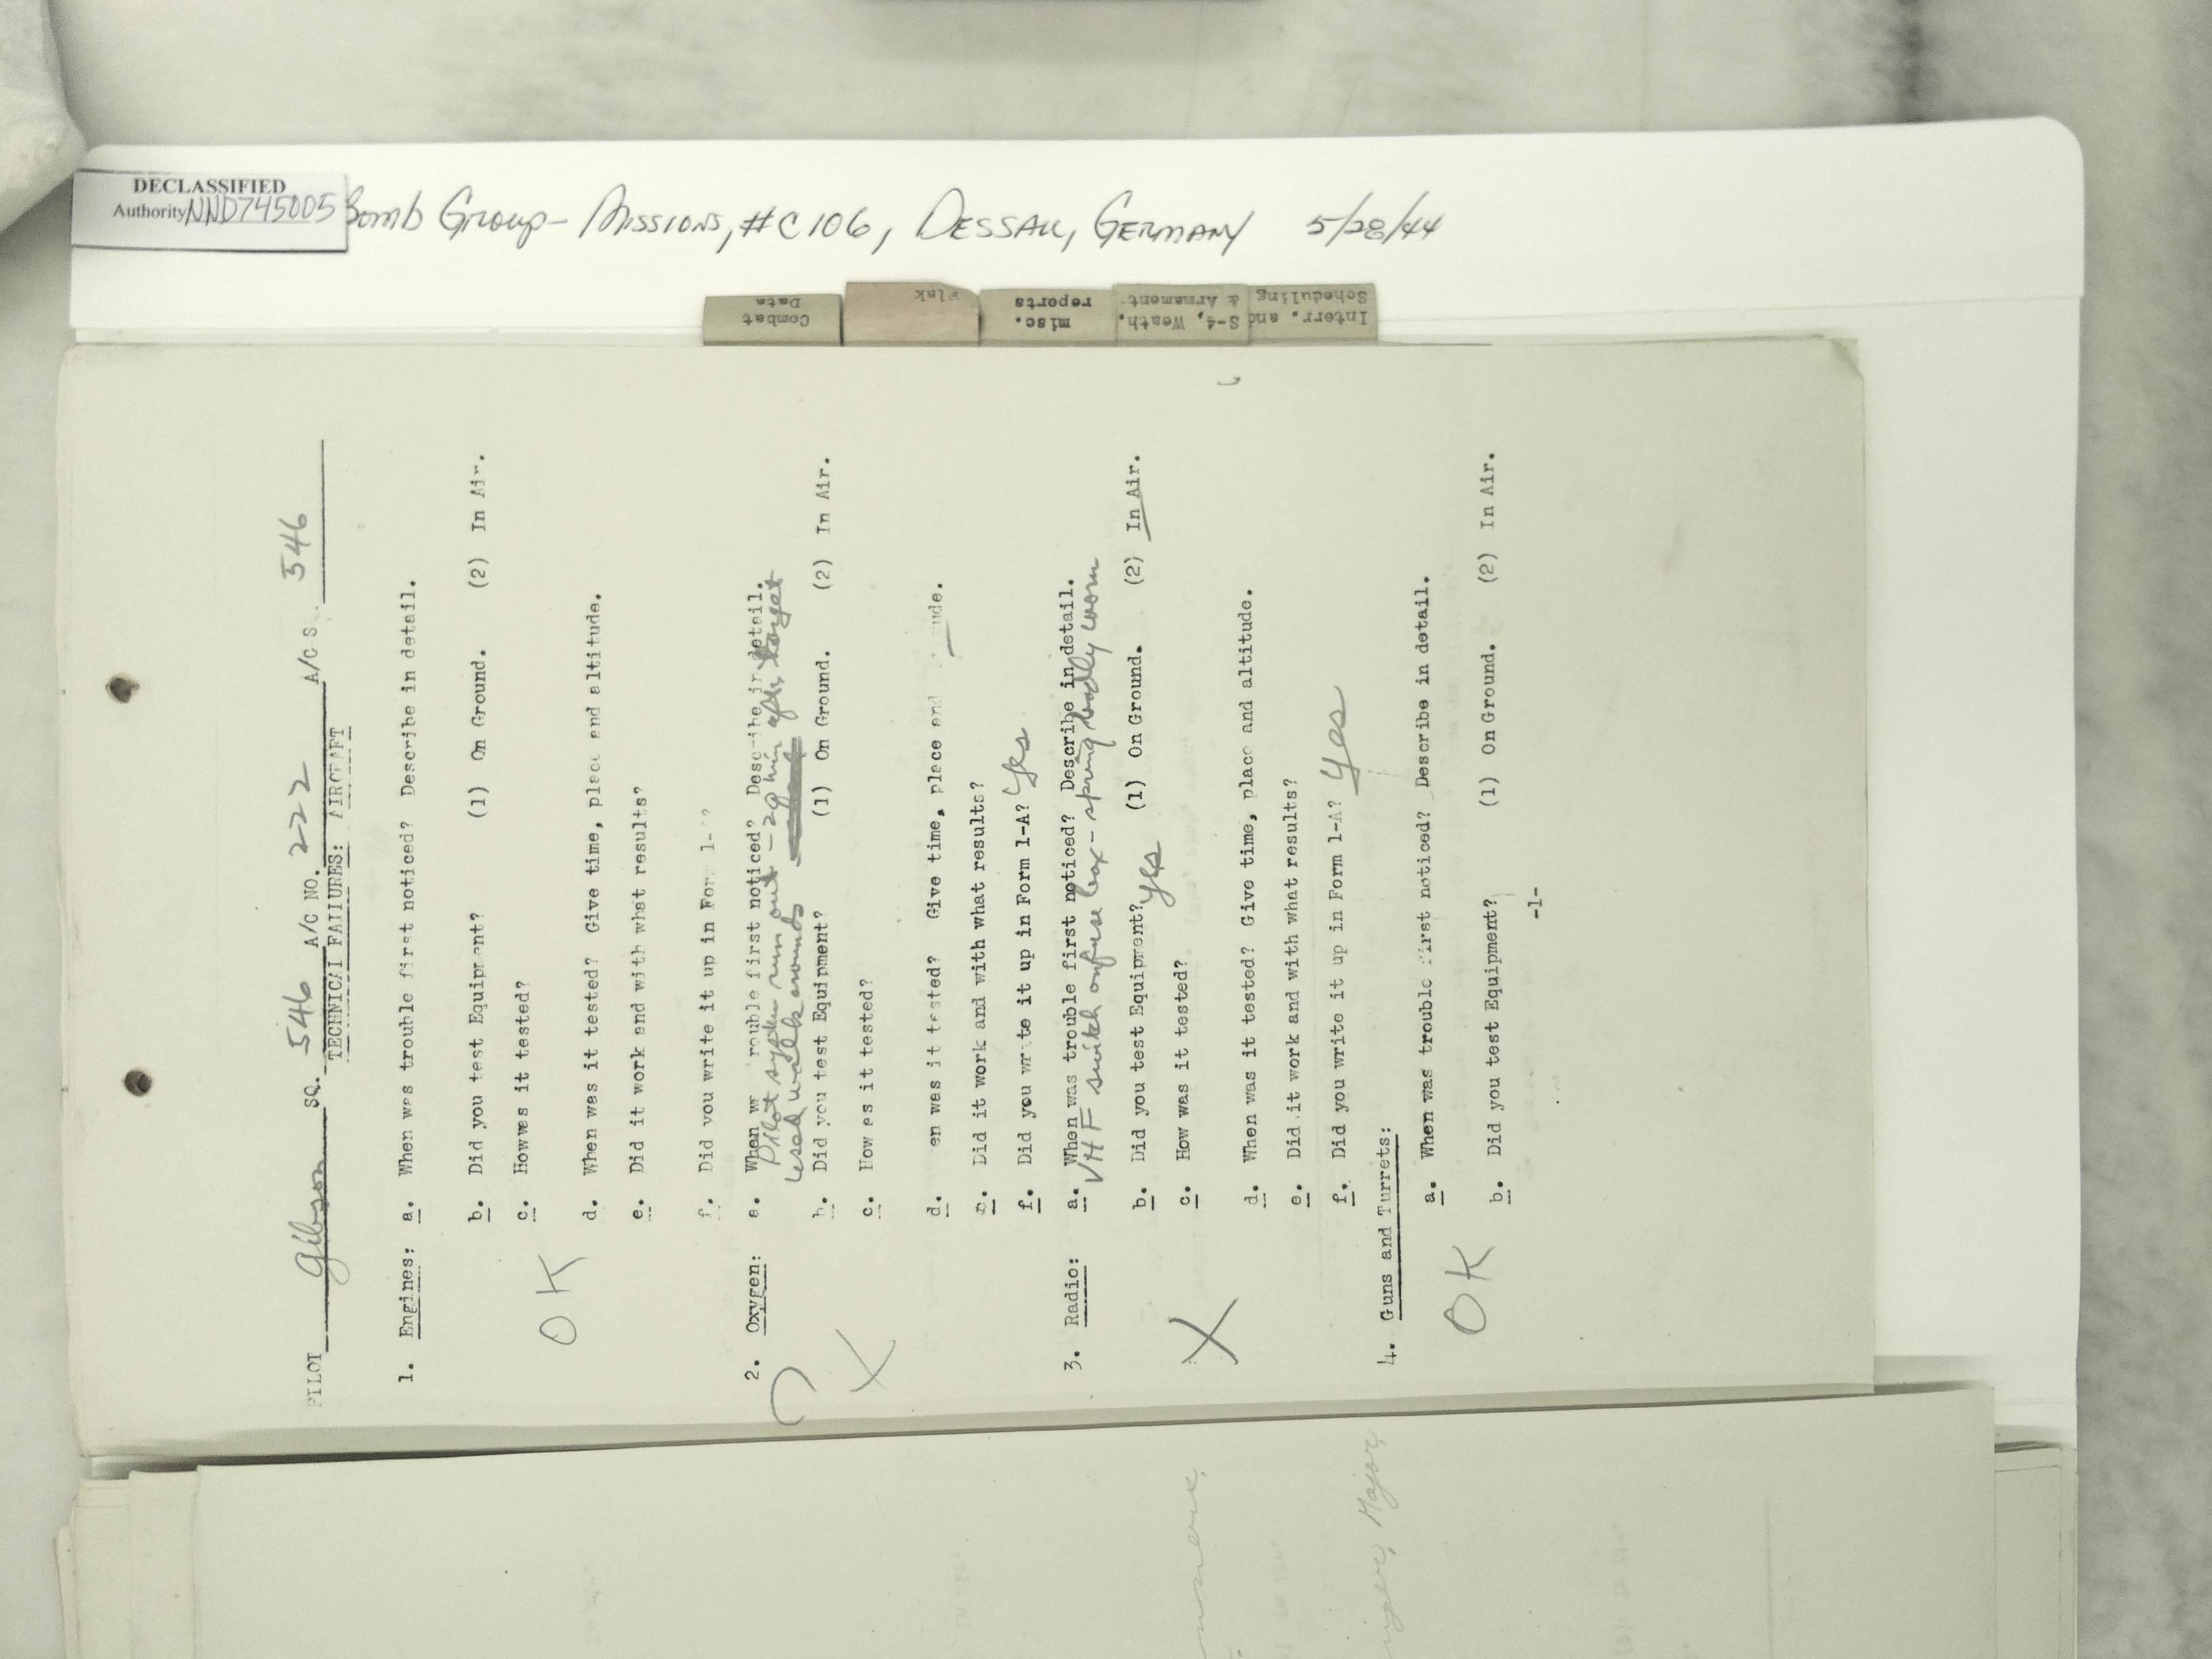 DECLASSIFIED
Authority NND745005
Bomb Group - Missions, #C106, DESSAU, GERMANY 5/28/44
Combat Data
Flak
misc. reports
S-4, Weath. & Armament
Interr. and Scheduling
PILOT Gibson SQ. 546 A/C NO. 222 A/C S. 546
TECHNICAL FAILURES: AIRCRAFT
1. Engines: a. When was trouble first noticed? Describe in detail.
b. Did you test Equipment? (1) On Ground. (2) In Air.
c. Howwas it tested?
OK
d. When was it tested? Give time, place and altitude.
e. Did it work and with what results?
f. Did you write it up in Form 1-?
2. Oxygen: a. When w rouble first noticed? Describe in detail.
Pilot system runs out - 20 min after target
used walk arounds
b. Did you test Equipment? (1) On Ground. (2) In Air.
X
c. How as it tested?
d. en was it tested? Give time, place and ude.
e. Did it work and with what results?
f. Did you write it up in Form 1-A? Yes
3. Radio: a. When was trouble first noticed? Describe in detail.
VHF switch on fuse box - spring badly worn
b. Did you test Equipment? yes (1) On Ground. (2) In Air.
c. How was it tested?
X
d. When was it tested? Give time, place and altitude.
e. Did it work and with what results?
f. Did you write it up in Form 1-A? Yes
4. Guns and Turrets:
a. When was trouble first noticed? Describe in detail.
OK
b. Did you test Equipment? (1) On Ground. (2) In Air.
-1-
Major